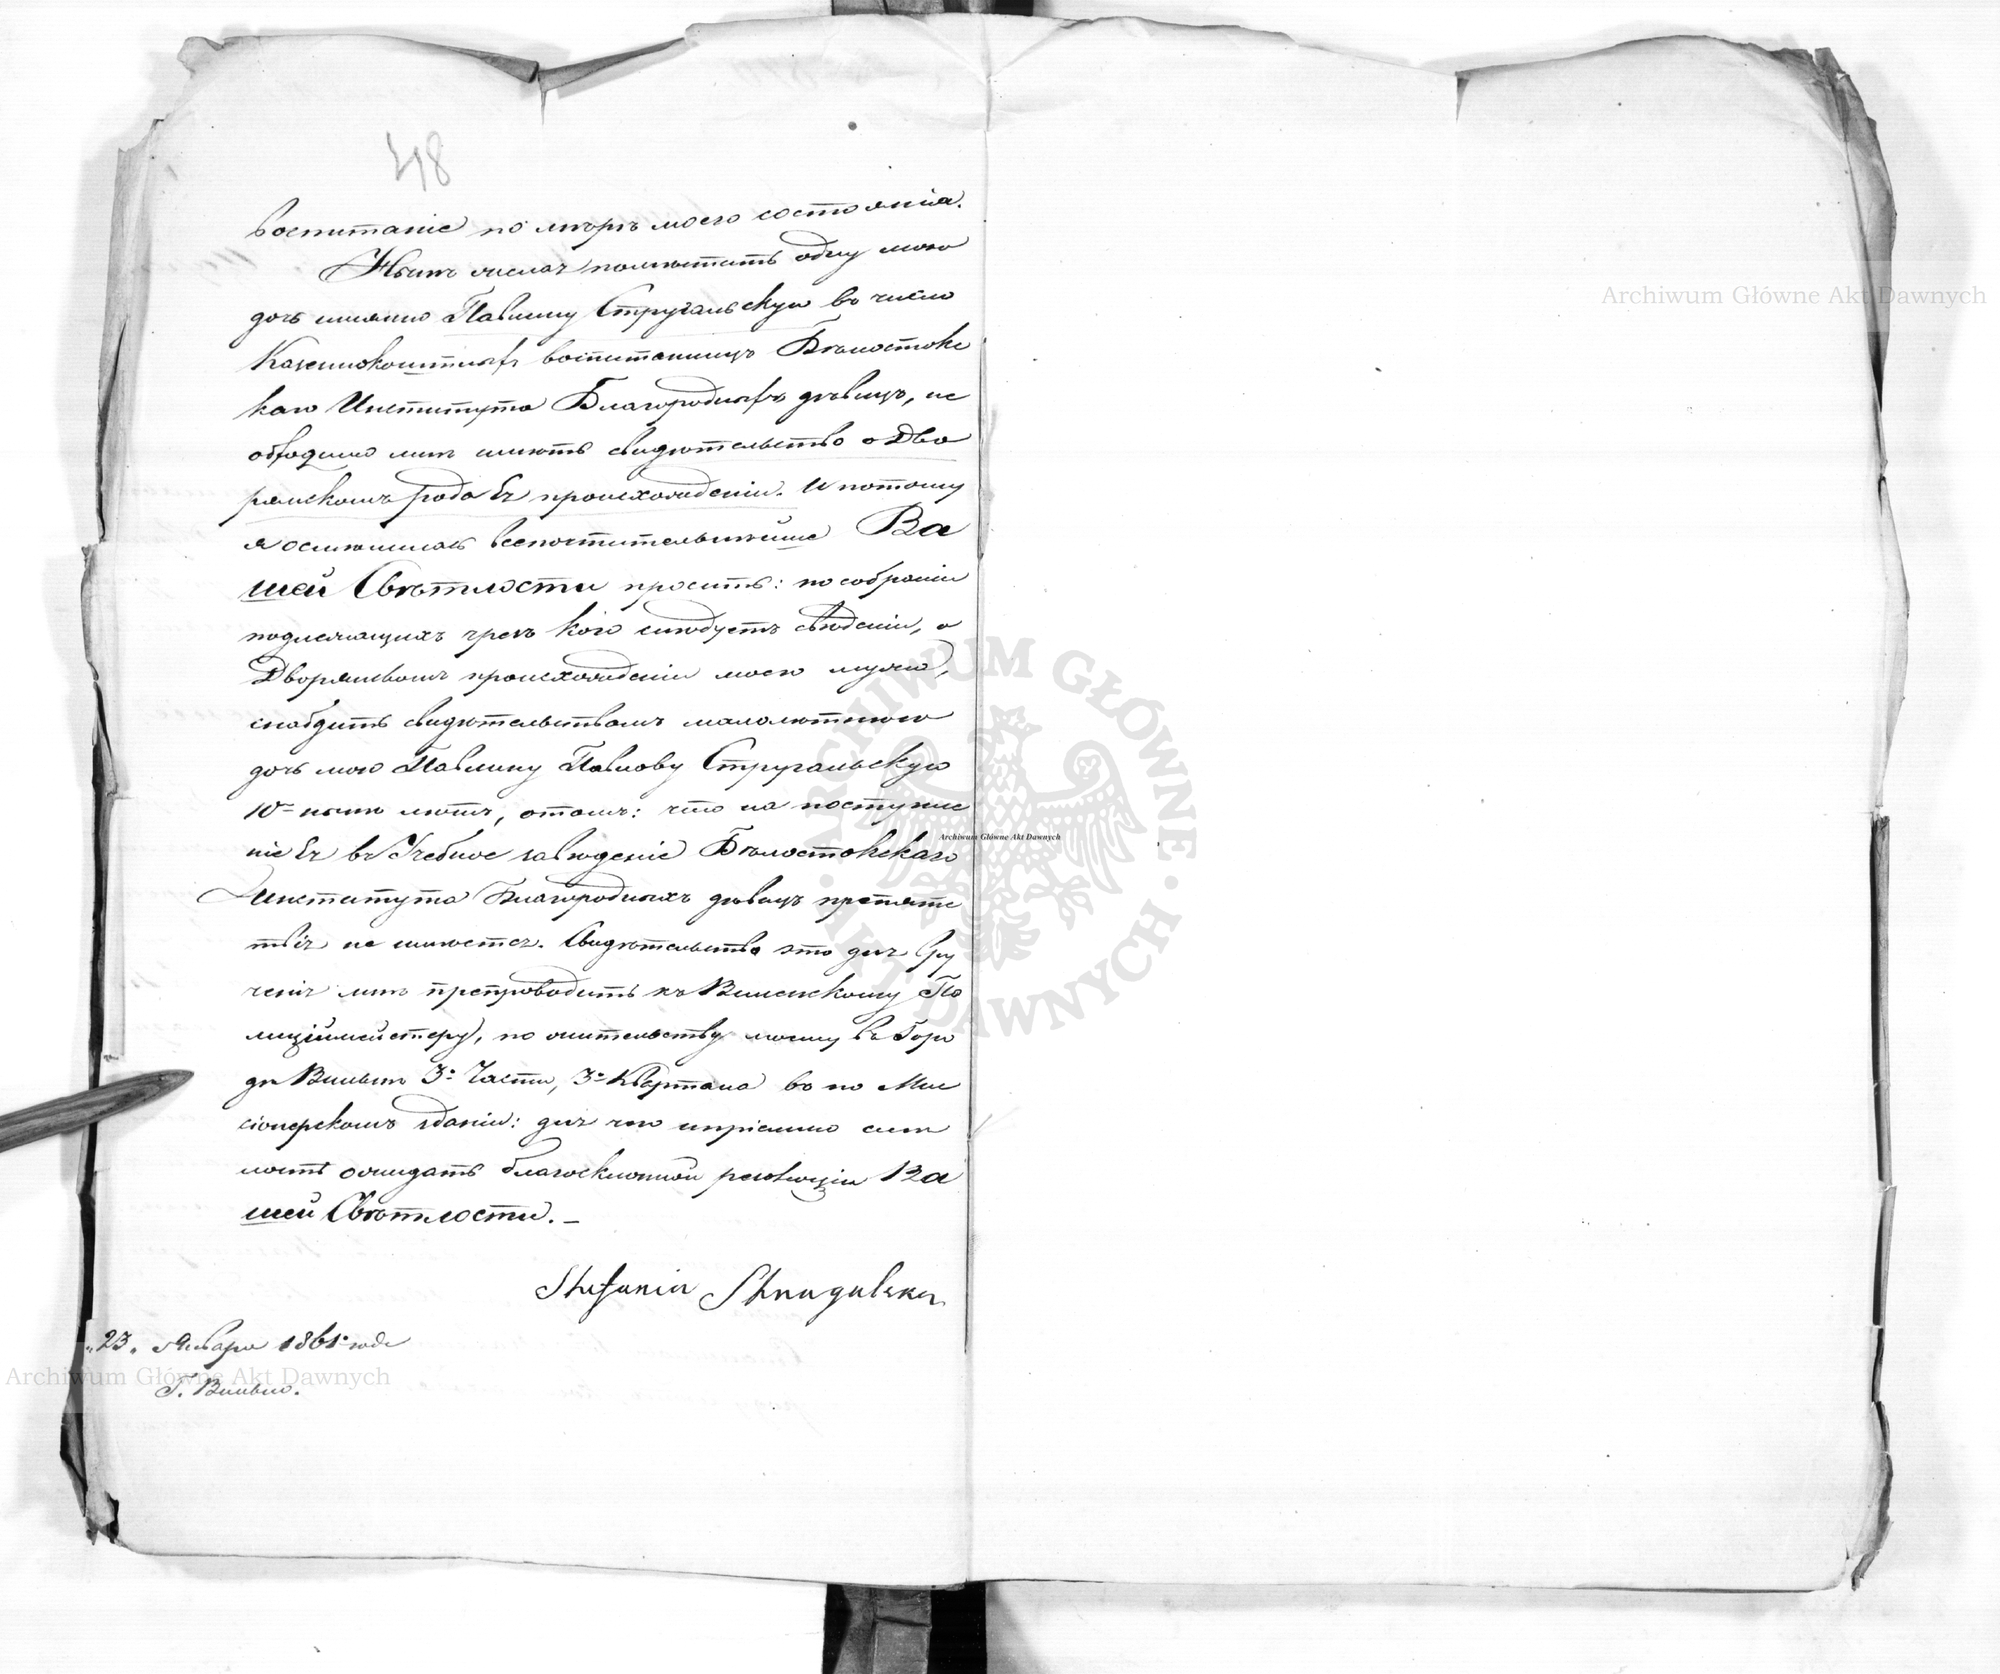 48
воспитаніе по мѣрѣ моего состоянія.
Нынѣ желая помѣстить одну мою
дочь имянно Павлину Стругальскую въ число
Казеннокоштныхъ воспитанницъ Бѣлостокс
каго Института Благородныхъ дѣвицъ, не
обходимо мнѣ имѣть свидѣтельство о Дво
рянскомъ рода Ея происхожденіи. И потому
я осмѣлилась всепочтительнѣйше Ва
шей Свѣтлости просить: по собраніи
подлежащихъ чрезъ кого слѣдуетъ свѣденіи, о
Дворянскомъ происхожденіи моего мужа,
снабдить свидѣтельствомъ малолѣтнюю
дочь мою Павлину Павлову Стругальскую
10-ть нынѣ лѣтъ, о томъ: что на поступле
ніе Ея въ Учебное заведеніе Бѣлостокскаго
Института Благородныхъ дѣвицъ препятс
твія не имѣется. Свидѣтельство это для вру
ченія мнѣ препроводить къ Виленскому По
лиціймейстеру, по жительству моему въ Горо
дѣ Вильнѣ 3й Части, 3о Квартала въ по Мис
сіонерскомъ зданіи: для чего имѣю смѣ
лость ожидать благосклонной резолюціи Ва
шей Свѣтлости.
Stefania Strugalska
"23" Января 1861 года
Г. Вильно.
Archiwum Główne Akt Dawnych
Archiwum Główne Akt Dawnych
Archiwum Główne Akt Dawnych
ARCHIWUM GŁÓWNE AKT DAWNYCH